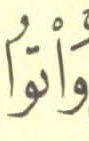 وَأْتُوا